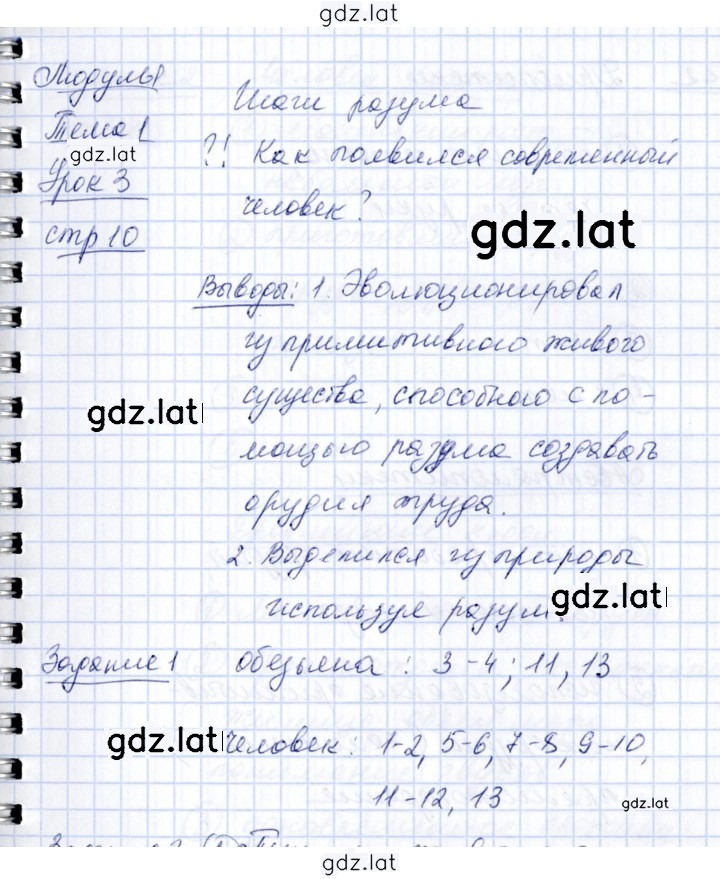 gdz.lat
Модуль 1
Шаги разума
Тема 1
gdz.lat
?! Как появился современный
Урок 3
человек?
gdz.lat
стр 10
Выводы: 1. Эволюционировал
из примитивного живого
существа, способного с по-
gdz.lat
мощью разума создавать
орудия труда.
2. Выделился из природы
используя разум.
gdz.lat
Задание 1 обезьяна: 3-4; 11, 13
gdz.lat
человек: 1-2, 5-6, 7-8, 9-10,
11-12, 13
gdz.lat
gdz.lat